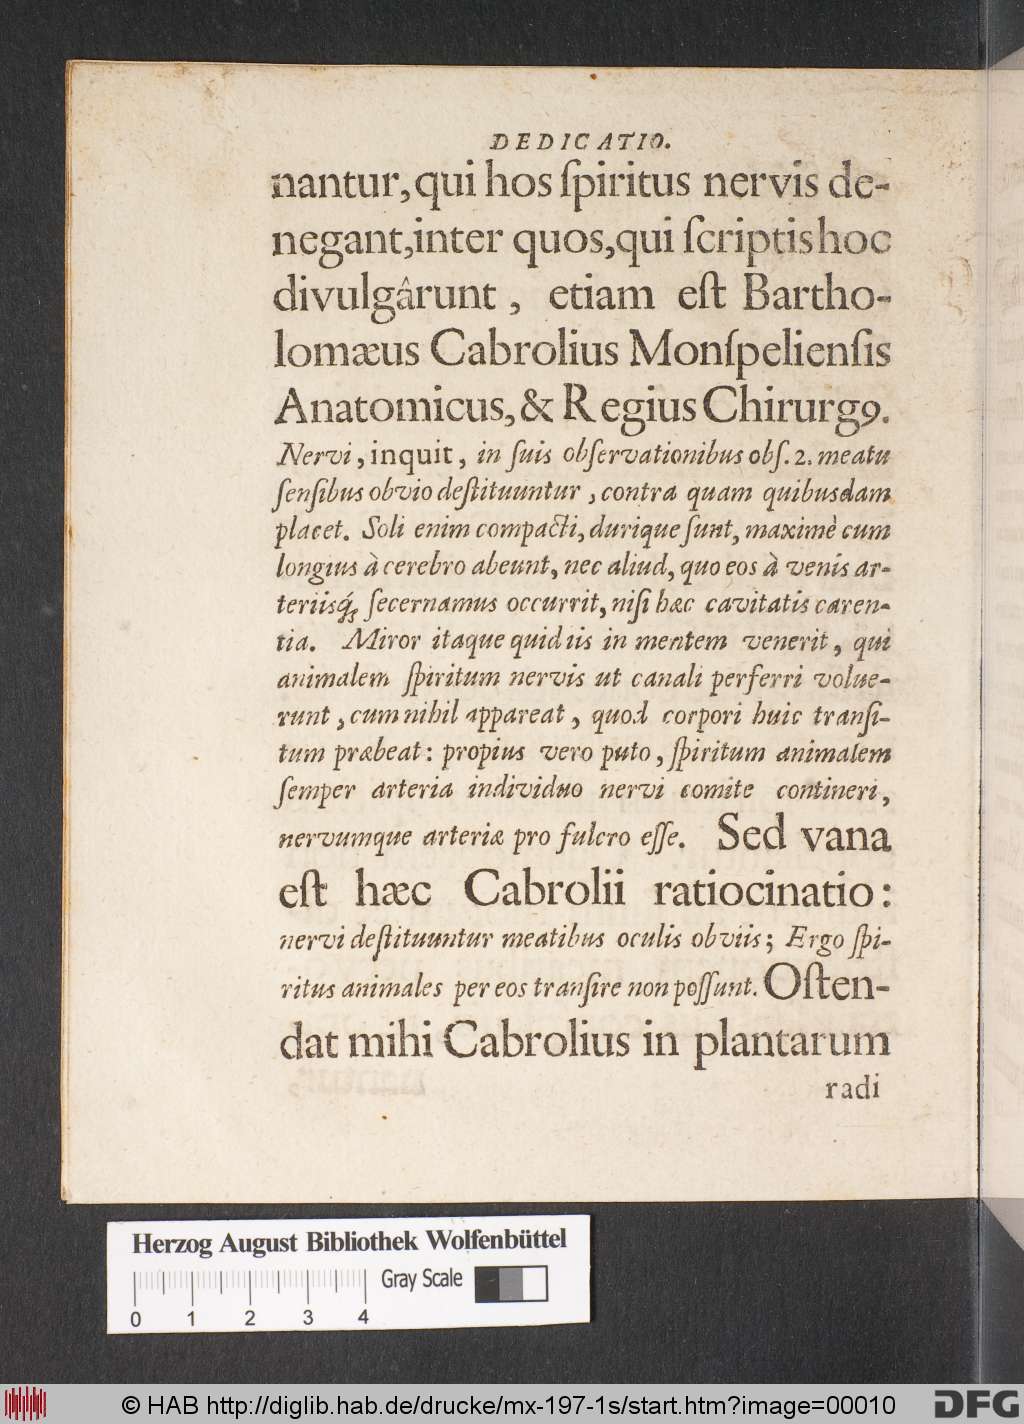 DEDICATIO.
nantur, qui hos ſpiritus nervis de-
negant, inter quos, qui ſcriptis hoc
divulgârunt, etiam eſt Bartho-
lomæus Cabrolius Monſpelienſis
Anatomicus, & Regius Chirurgꝰ.
Nervi, inquit, in ſuis obſervationibus obſ. 2. meatu
ſenſibus obvio deſtituuntur, contra quam quibusdam
placet. Soli enim compacti, durique ſunt, maximè cum
longius à cerebro abeunt, nec aliud, quo eos à venis ar-
teriisq́ꝫ ſecernamus occurrit, niſi hæc cavitatis caren-
tia. Miror itaque quid iis in mentem venerit, qui
animalem ſpiritum nervis ut canali perferri volue-
runt, cum nihil appareat, quod corpori huic tranſi-
tum præbeat: propius vero puto, ſpiritum animalem
ſemper arteria individuo nervi comite contineri,
nervumque arteriæ pro fulcro eſſe. Sed vana
eſt hæc Cabrolii ratiocinatio:
nervi deſtituuntur meatibus oculis obviis; Ergo ſpi-
ritus animales per eos tranſire non poſſunt. Oſten-
dat mihi Cabrolius in plantarum
radi
Herzog August Bibliothek Wolfenbüttel
Gray Scale
0 1 2 3 4
© HAB http://diglib.hab.de/drucke/mx-197-1s/start.htm?image=00010
DFG